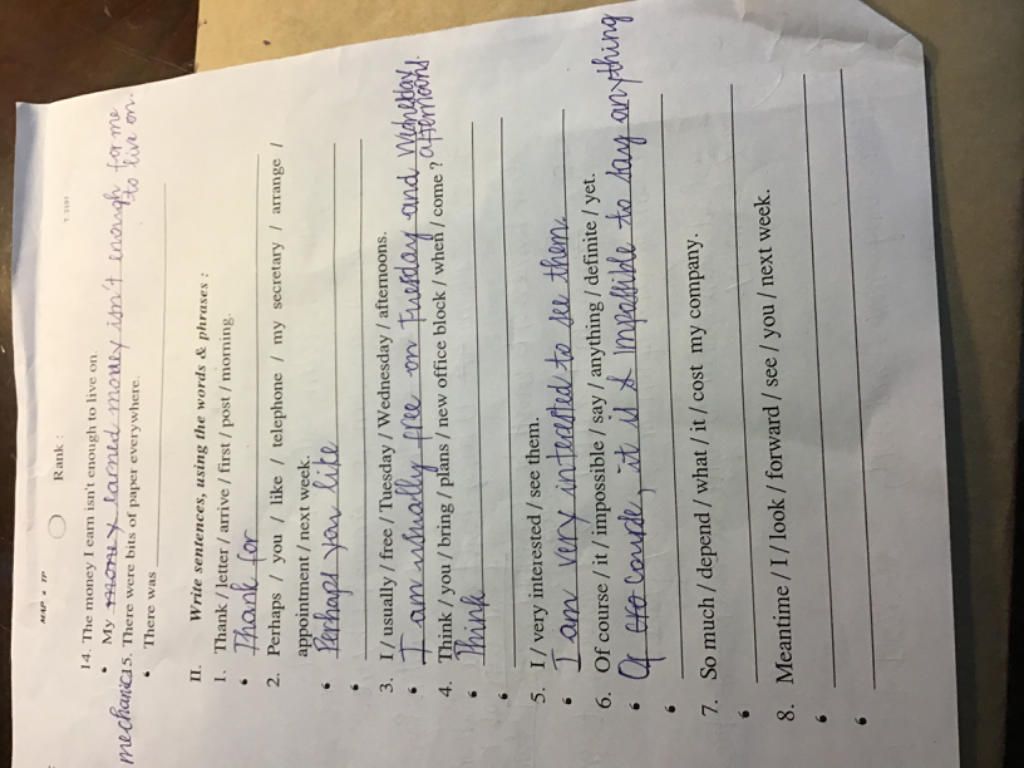 MAP • TP
T 3191
Rank :
14. The money I earn isn't enough to live on.
• My money earned money isn't enough for me
to live on.
mechanic 15. There were bits of paper everywhere.
• There was
II. Write sentences, using the words & phrases :
1. Thank / letter / arrive / first / post / morning.
• Thank for
2. Perhaps / you / like / telephone / my secretary / arrange /
appointment / next week.
• Perhaps you like
•
3. I / usually / free / Tuesday / Wednesday / afternoons.
• I am usually free on Tuesday and
afternoons.
4. Think / you / bring / plans / new office block / when / come ?
• Think
•
5. I / very interested / see them.
• I am very interested to see them.
6. Of course / it / impossible / say / anything / definite / yet.
• Of course, it is impossible to say anything
•
7. So much / depend / what / it / cost my company.
•
8. Meantime / I / look / forward / see / you / next week.
•
•